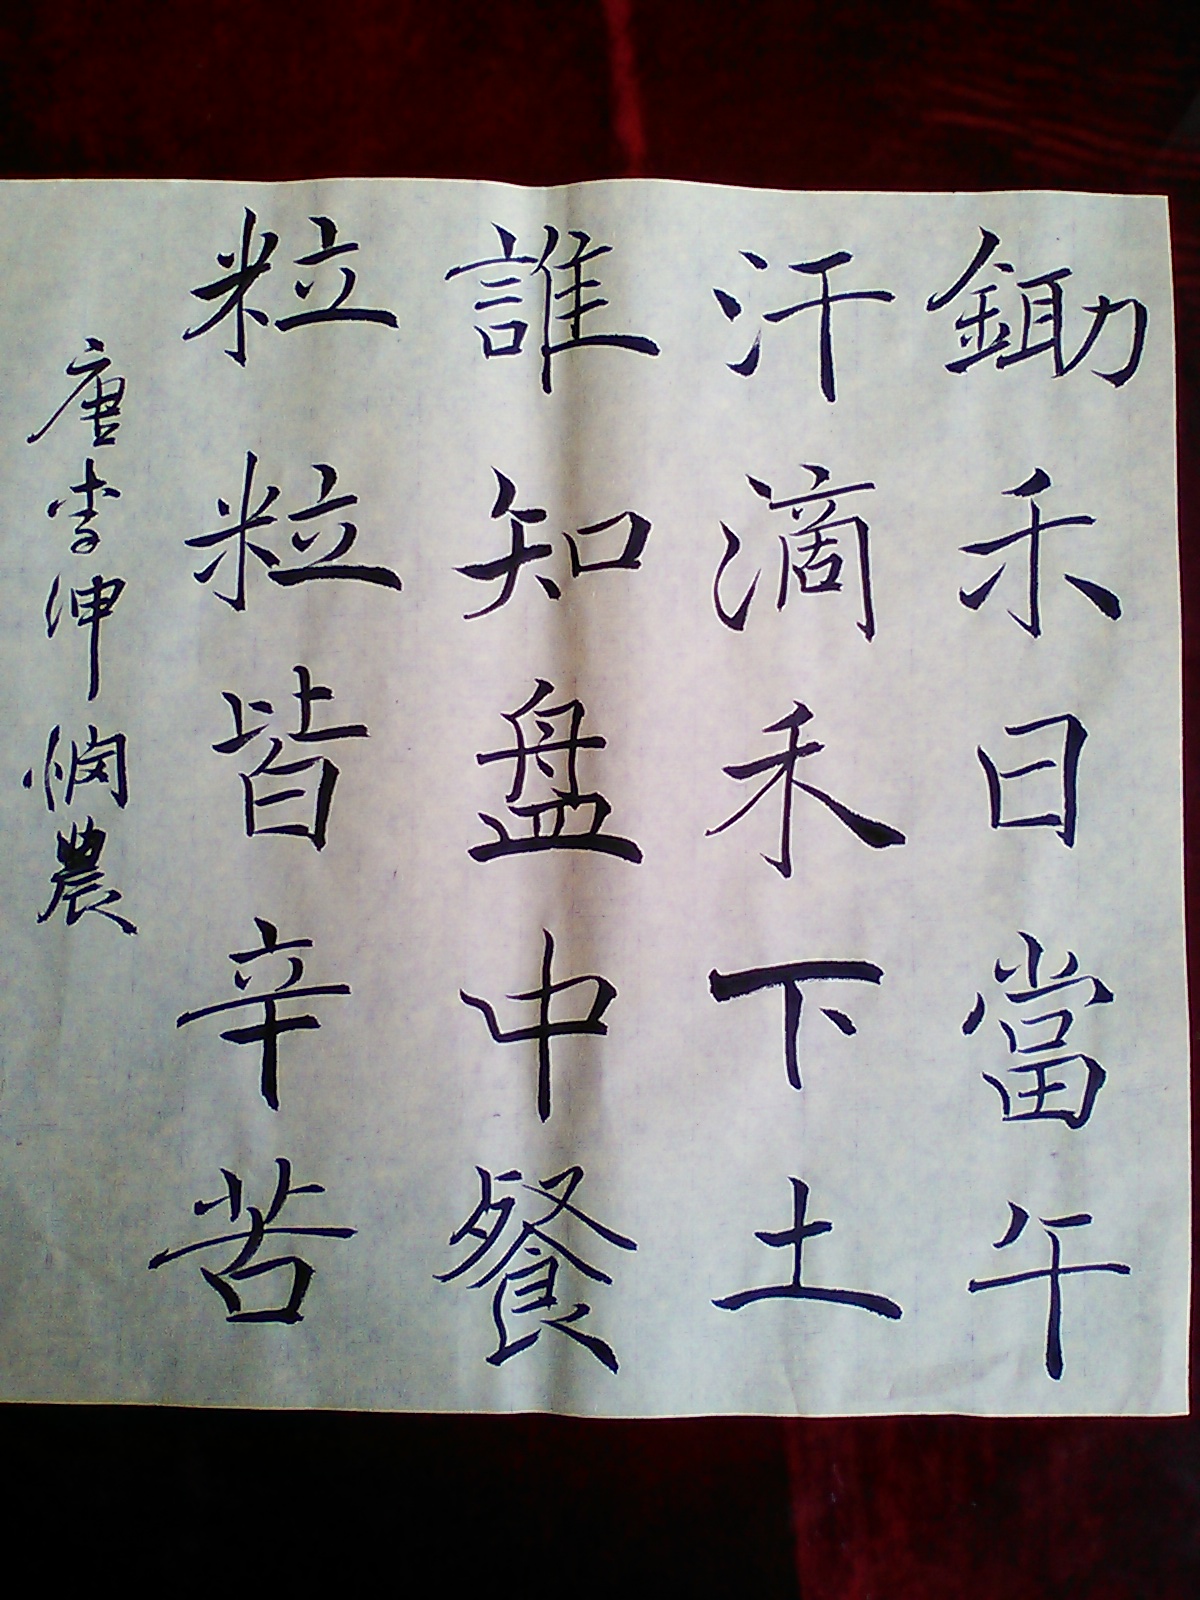 鋤禾日當午
汗滴禾下土
誰知盤中餐
粒粒皆辛苦
唐李紳憫農